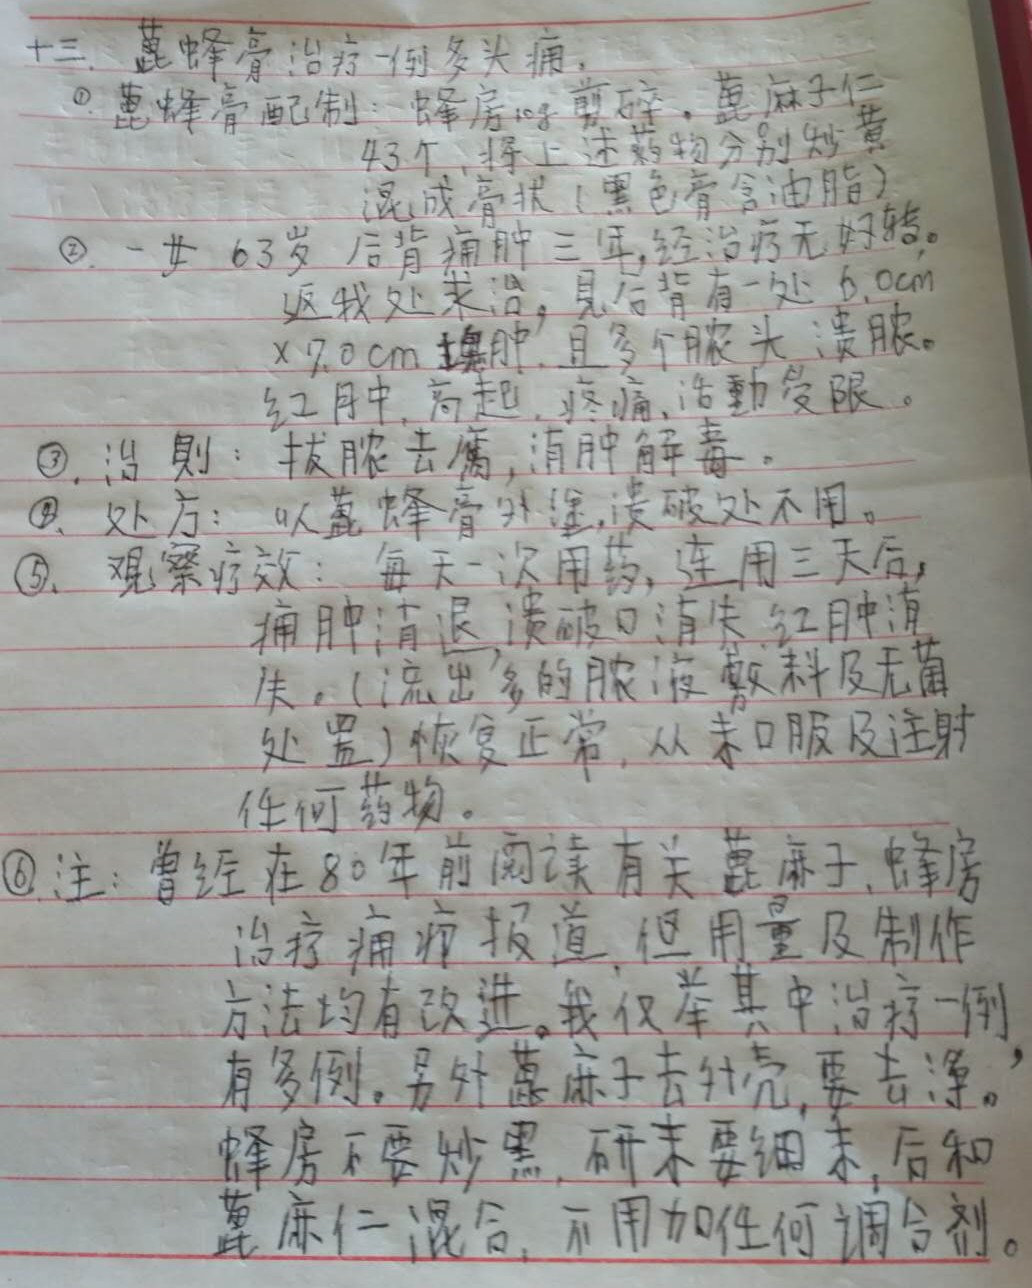 十三. 蓖蜂膏治疗一例多头痈.
① 蓖蜂膏配制: 蜂房10g剪碎. 蓖麻子仁
43个, 将上述药物分别炒黄
混成膏状(黑色膏含油脂)
②. 一女 63岁 后背痈肿三年,经治疗无好转。
返我处求治, 见后背有一处6.0cm
×7.0cm 块肿, 且多个脓头溃脓。
红肿, 高起, 疼痛, 活動受限。
③. 治則: 拔脓去腐, 消肿解毒。
④. 处方: 以蓖蜂膏外涂, 溃破处不用。
⑤. 观察疗效: 每天一次用药, 连用三天后,
痈肿消退, 溃破口消失, 红肿消
失。(流出多的脓液敷料及无菌
处置)恢复正常, 从未口服及注射
任何药物。
⑥.注: 曾经在80年前阅读有关蓖麻子、蜂房
治疗痈疖报道, 但用量及制作
方法均有改进。我仅举其中治疗一例,
有多例。另外蓖麻子去外壳, 要去净。
蜂房不要炒黑, 研末要细末, 后和
蓖麻仁混合, 不用加任何调合剂。